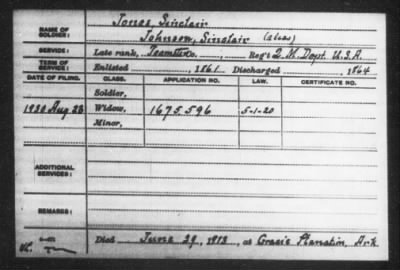 NAME OF SOLDIER: Jones, Sinclair
Johnson, Sinclair (alias)
SERVICE: Late rank, Teamster, Reg't Q.M. Dept. U.S.A.
TERM OF SERVICE: Enlisted , 1861 Discharged , 1864
DATE OF FILING. CLASS. APPLICATION NO. LAW. CERTIFICATE NO.
Soldier,
1930 Aug 28 Widow, 1675,596 5-1-20
Minor,
ADDITIONAL SERVICES:
REMARKS:
Died June 29, 1912, at Ark